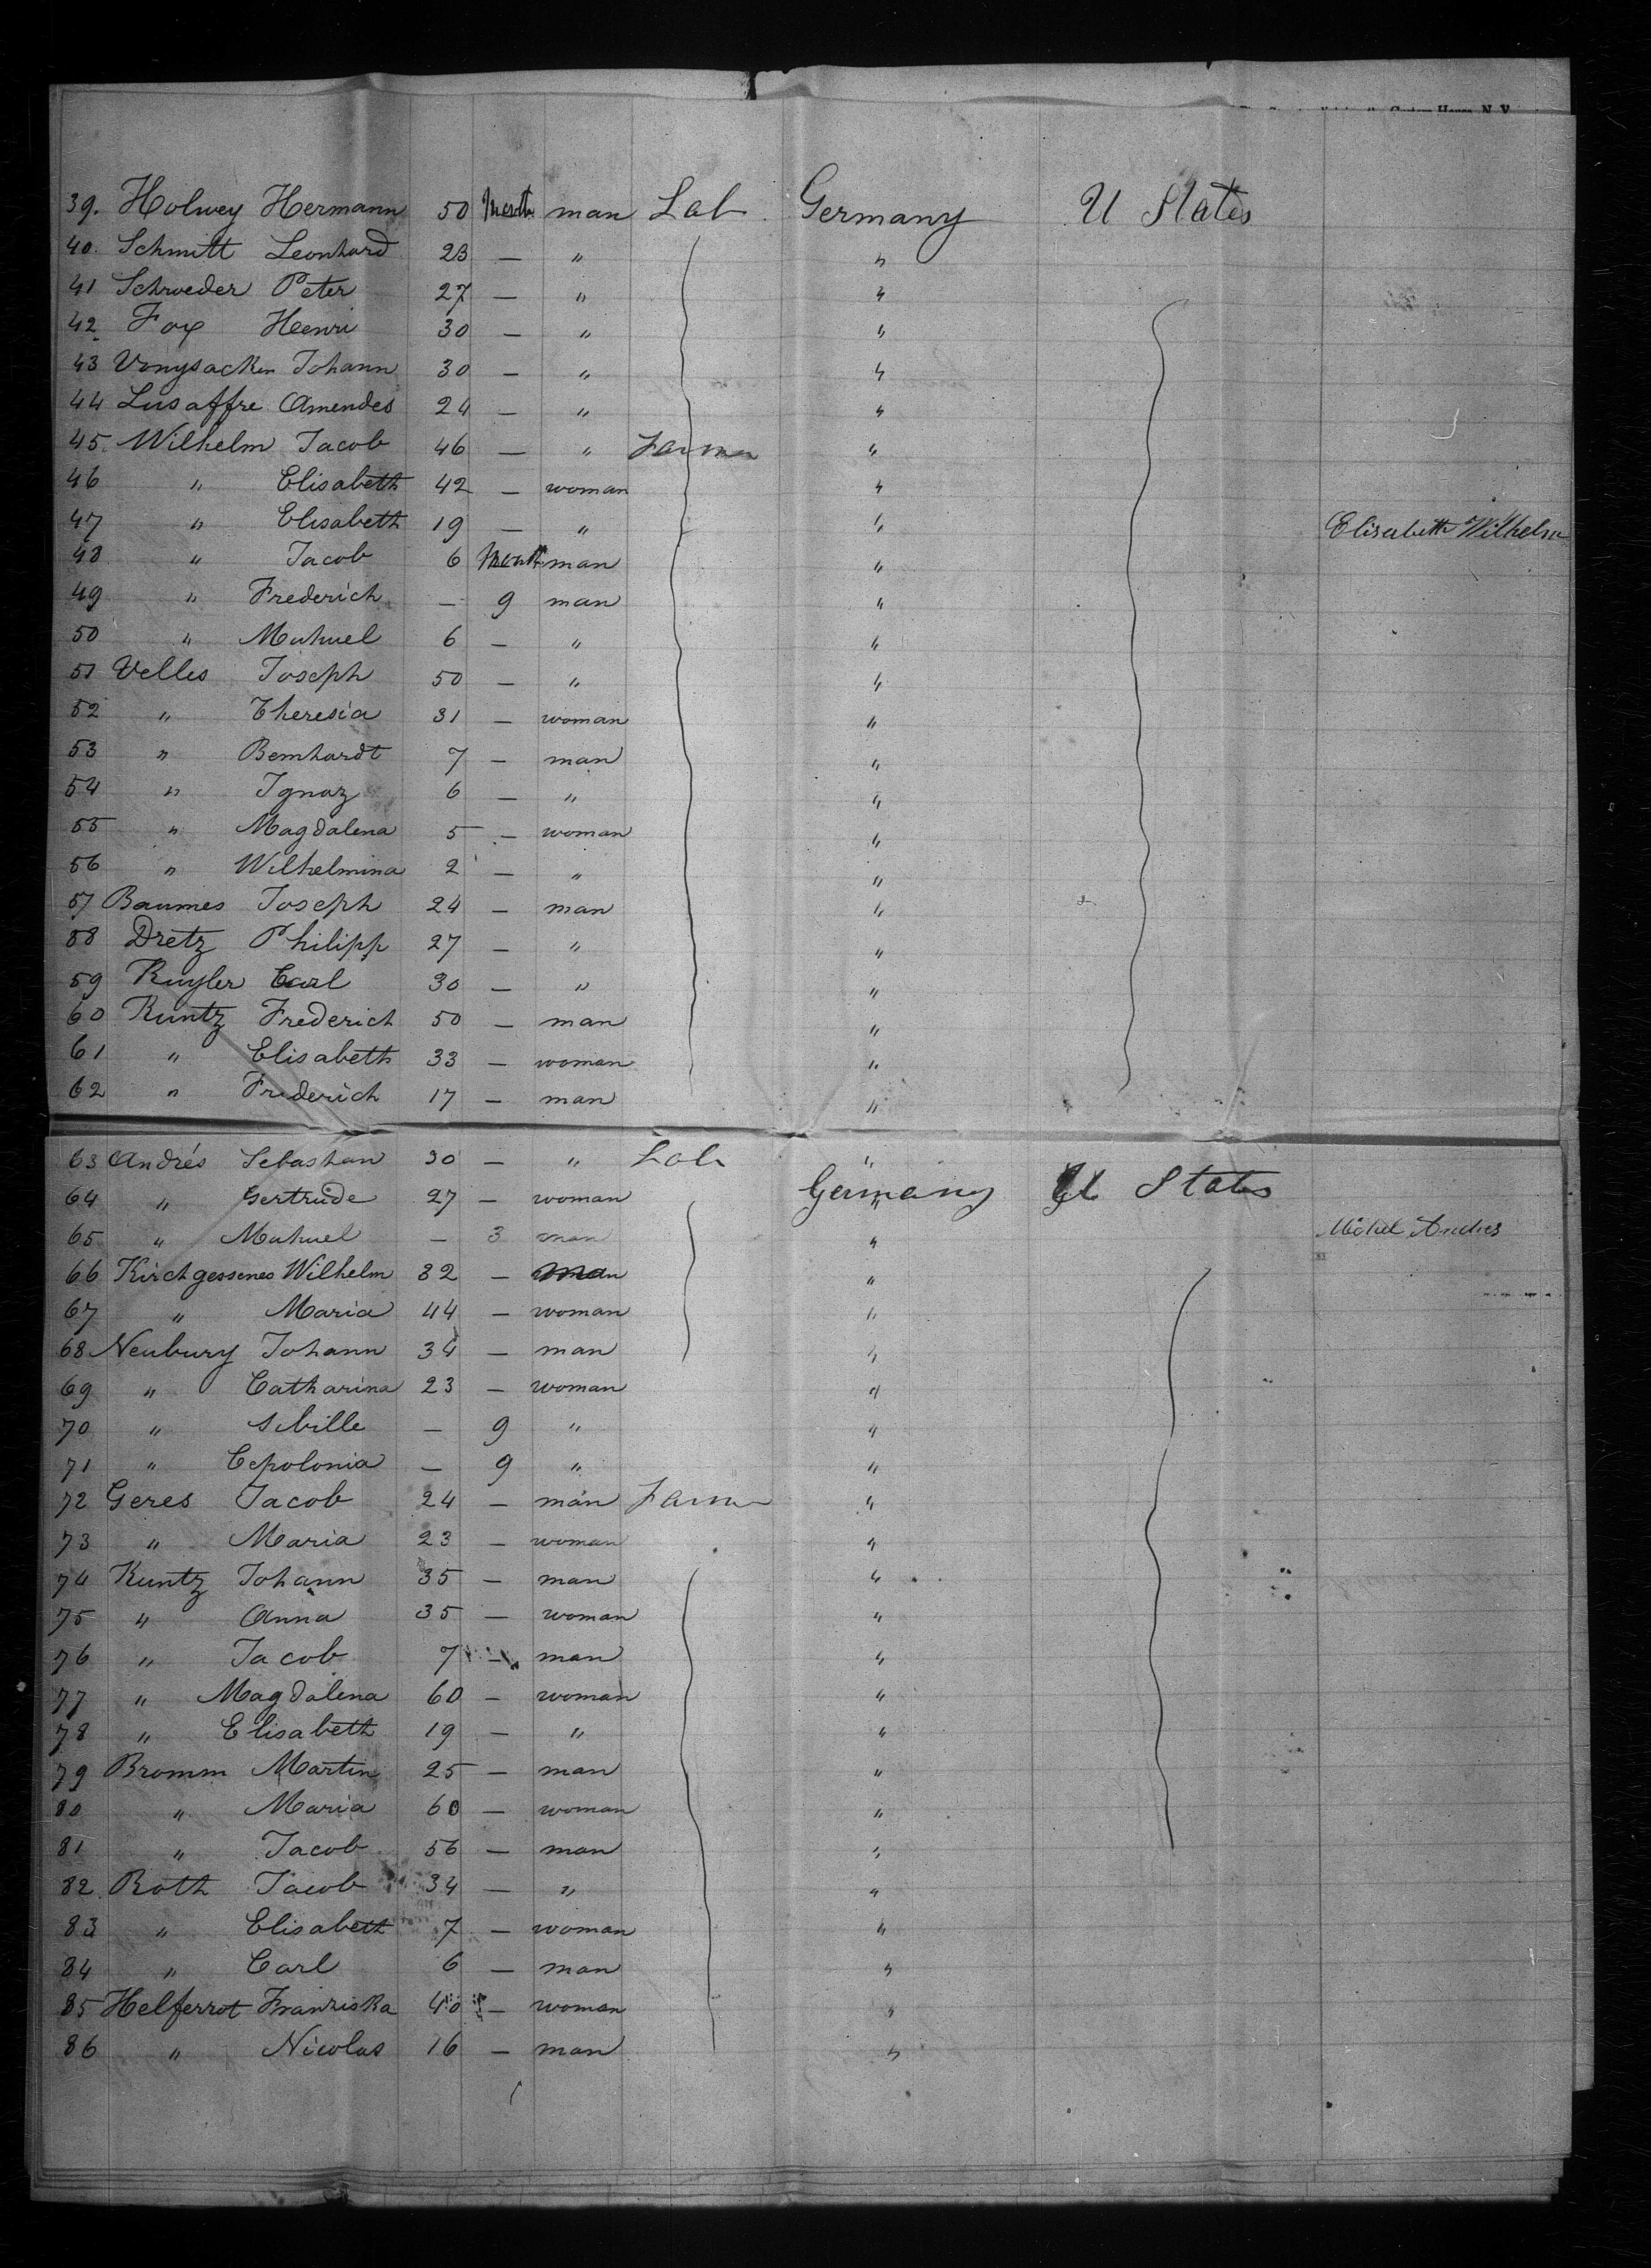 Custom House, N. Y.
39. Holwey Hermann 50 Month man Lab Germany U States
40. Schmitt Leonhard 23 — " "
41 Schroeder Peter 27 — " "
42 Fox Henri 30 — " "
43 Vonysacken Johann 30 — " "
44 Lusaffre Amendes 24 — " "
45. Wilhelm Jacob 46 — " Farmer "
46 " Elisabeth 42 — woman "
47 " Elisabeth 19 — " " Elisabetha Wilhelm
48 " Jacob 6 Month man "
49 " Frederich — 9 man "
50 " Muhuel 6 — " "
51 Velles Joseph 50 — " "
52 " Theresia 31 — woman "
53 " Bernhardt 7 — man "
54 " Ignaz 6 — " "
55 " Magdalena 5 — woman "
56 " Wilhelmina 2 — " "
57 Baumes Joseph 24 — man "
58 Dretz Philipp 27 — " "
59 Kuyler Carl 30 — " "
60 Kuntz Frederich 50 — man "
61 " Elisabeth 33 — woman "
62 " Frederich 17 — man "
63 Andrés Sebastian 30 — " Lab "
64 " Gertrude 27 — woman Germany " U States
65 " Muhuel — 3 man " Michel Andres
66 Kirchgessenes Wilhelm 32 — man "
67 " Maria 44 — woman "
68 Neubury Johann 34 — man "
69 " Catharina 23 — woman "
70 " Sibille — 9 " "
71 " Cepolonia — 9 " "
72 Geres Jacob 24 — man Farmer "
73 " Maria 23 — woman "
74 Kuntz Johann 35 — man "
75 " Anna 35 — woman "
76 " Jacob 7 — man "
77 " Magdalena 60 — woman "
78 " Elisabeth 19 — " "
79 Bromm Martin 25 — man "
80 " Maria 60 — woman "
81 " Jacob 56 — man "
82 Roth Jacob 34 — " "
83 " Elisabeth 7 — woman "
84 " Carl 6 — man "
85 Helferrot Franziska 40 — woman "
86 " Nicolas 16 — man "